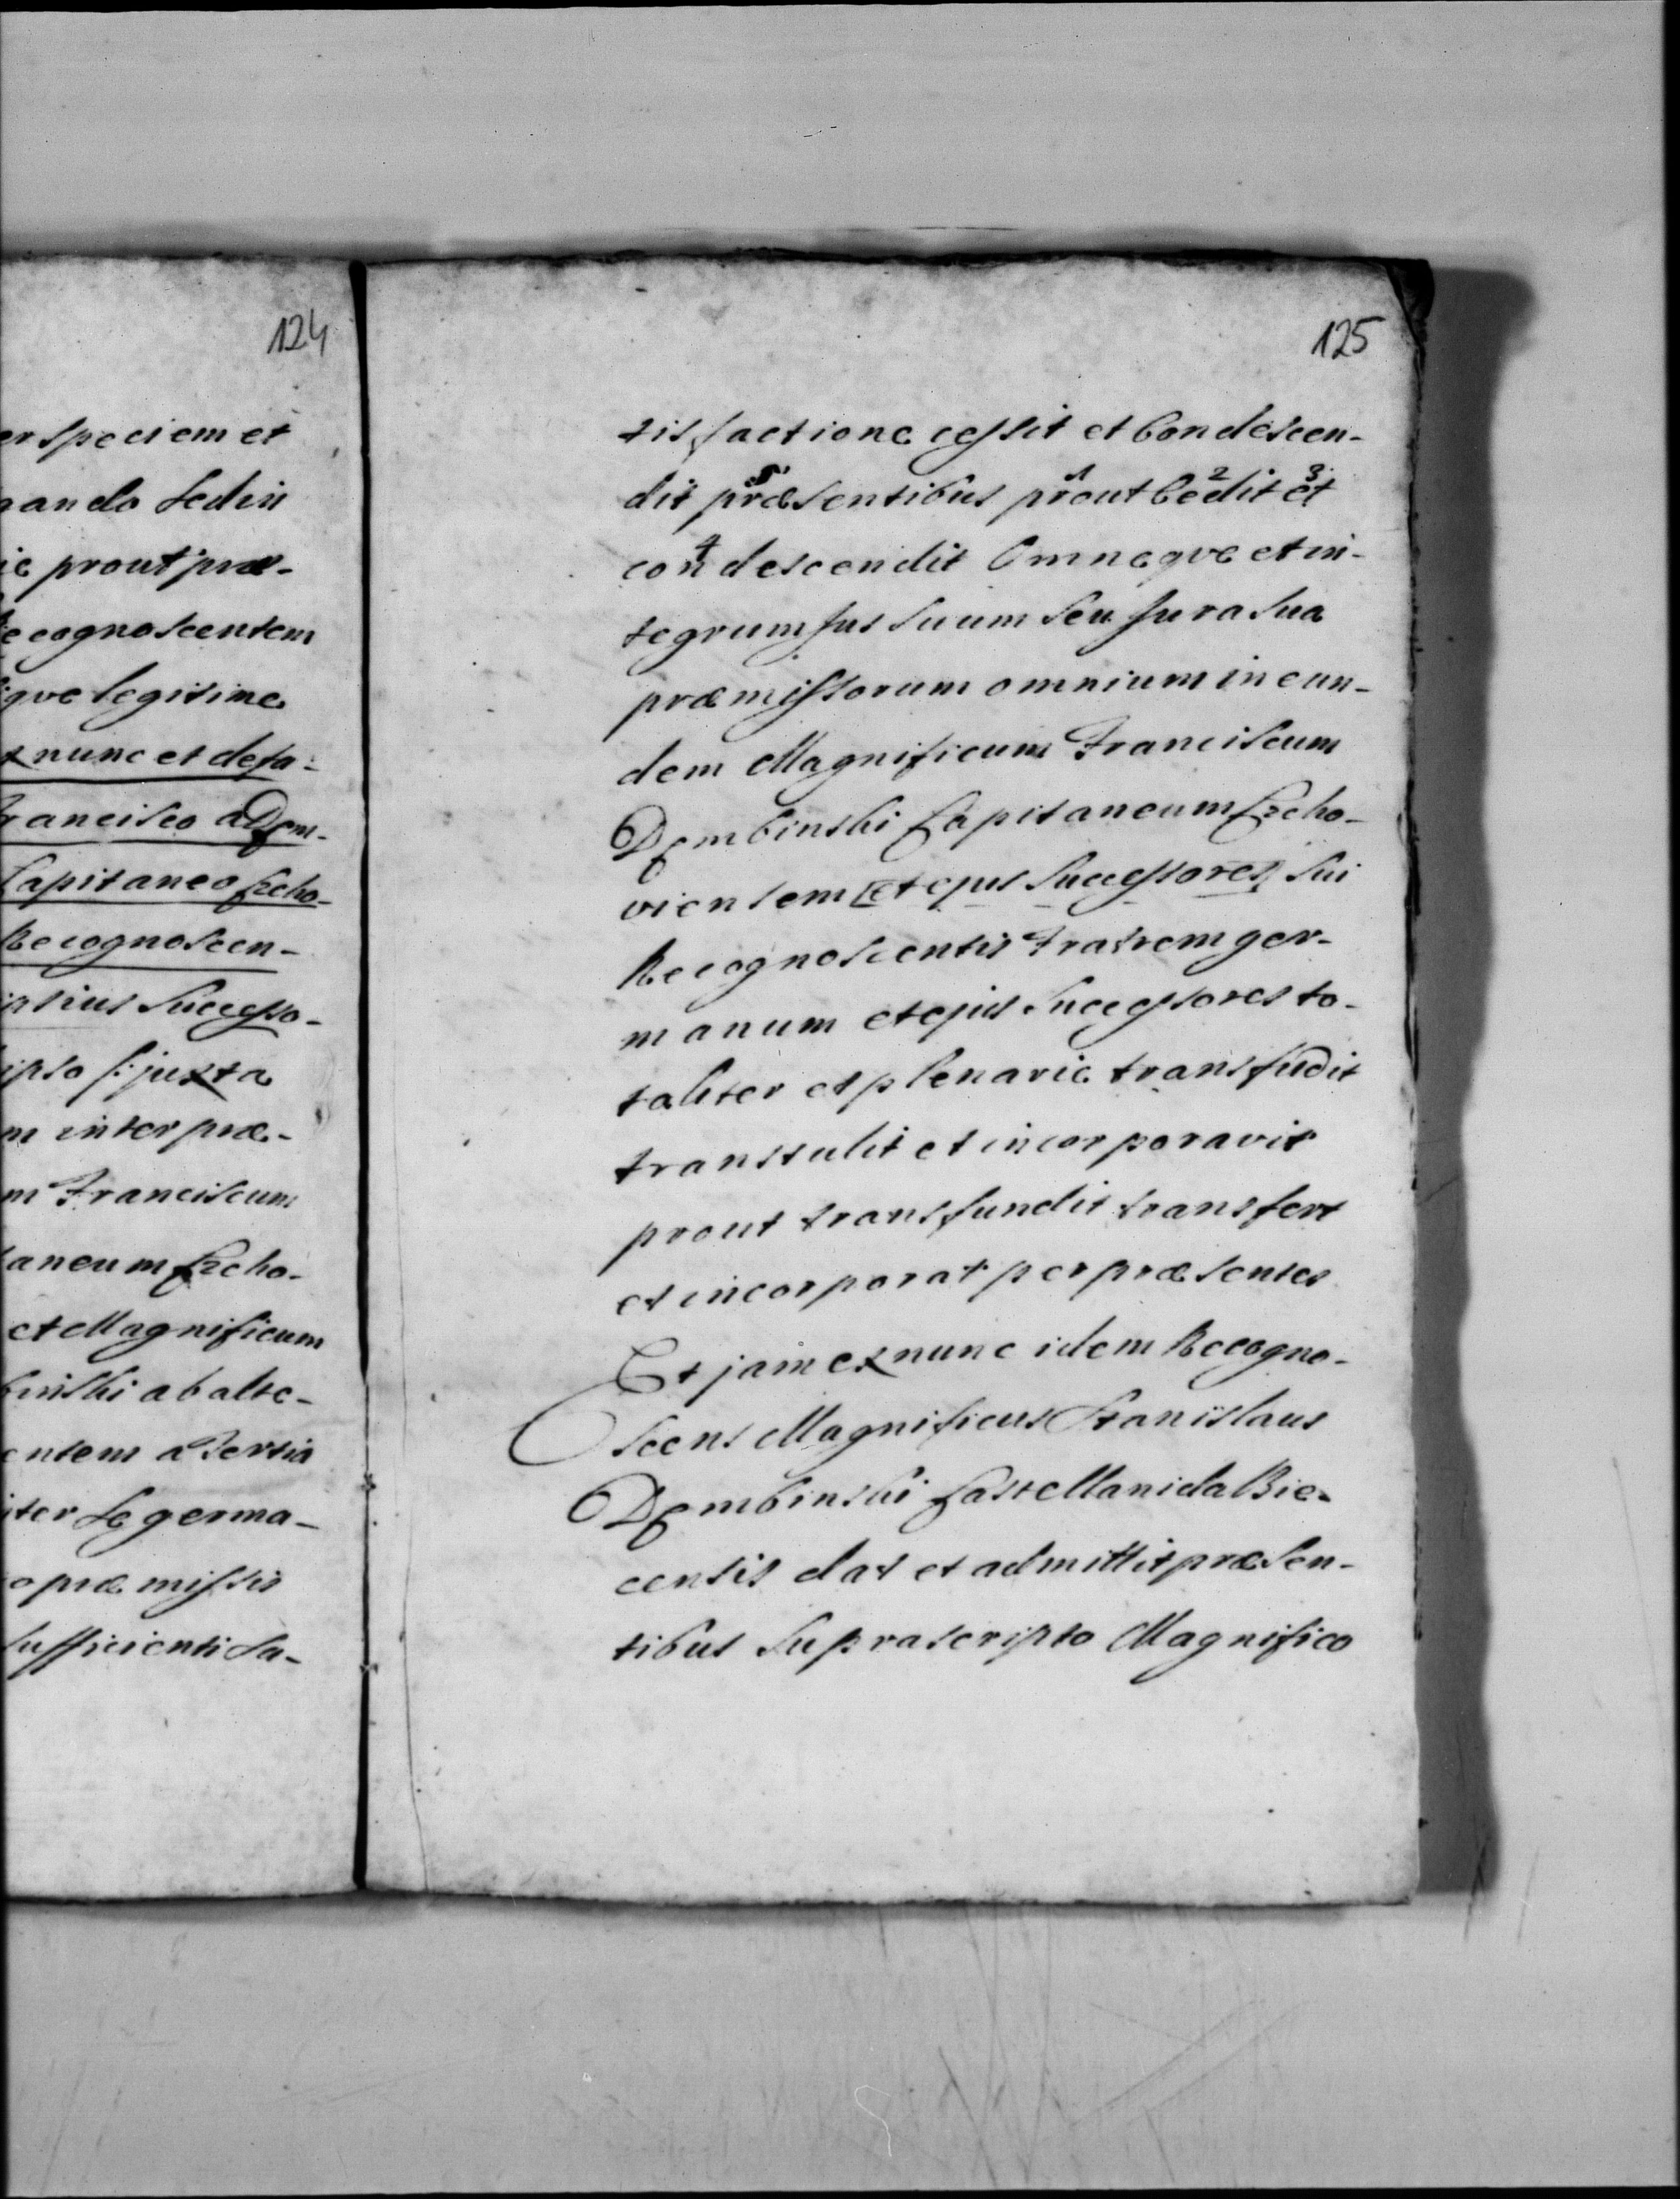 124
er speciem et
ando sed in
ie prout præ-
ecognoscentem
qve legitime
nunc et de fa-
rancisco a Dem-
Capitaneo Ezcho-
Recognoscen-
ipsius Successo-
ipso /:juxta
m inter præ-
m Franciscum
aneum Ezcho-
et Magnificum
binski ab alte-
entem a tertia
iter se germa-
o præmissis
sufficienti Sa-
125
tisfactione cessit et Condescen-
dit 5 præsentibus 1 prout 2 Cedit 3 et
4 condescendit Omneqve et in-
tegrum Jus Suum Seu Jura Sua
præmissorum omnium in eun-
dem Magnificum Franciscum
Dembinski Capitaneum Ezcho-
viensem [et ejus Successores] Sui
Recognoscentis Fratrem ger-
manum et ejus Successores to-
taliter et plenarie transfudit
transtulit et incorporavit
prout transfundit transfert
et incorporat per præsentes
Et jam ex nunc idem Recogno-
scens Magnificus Stanislaus
Dembinski Castellanida Bie-
censis dat et admittit præsen-
tibus Suprascripto Magnifico